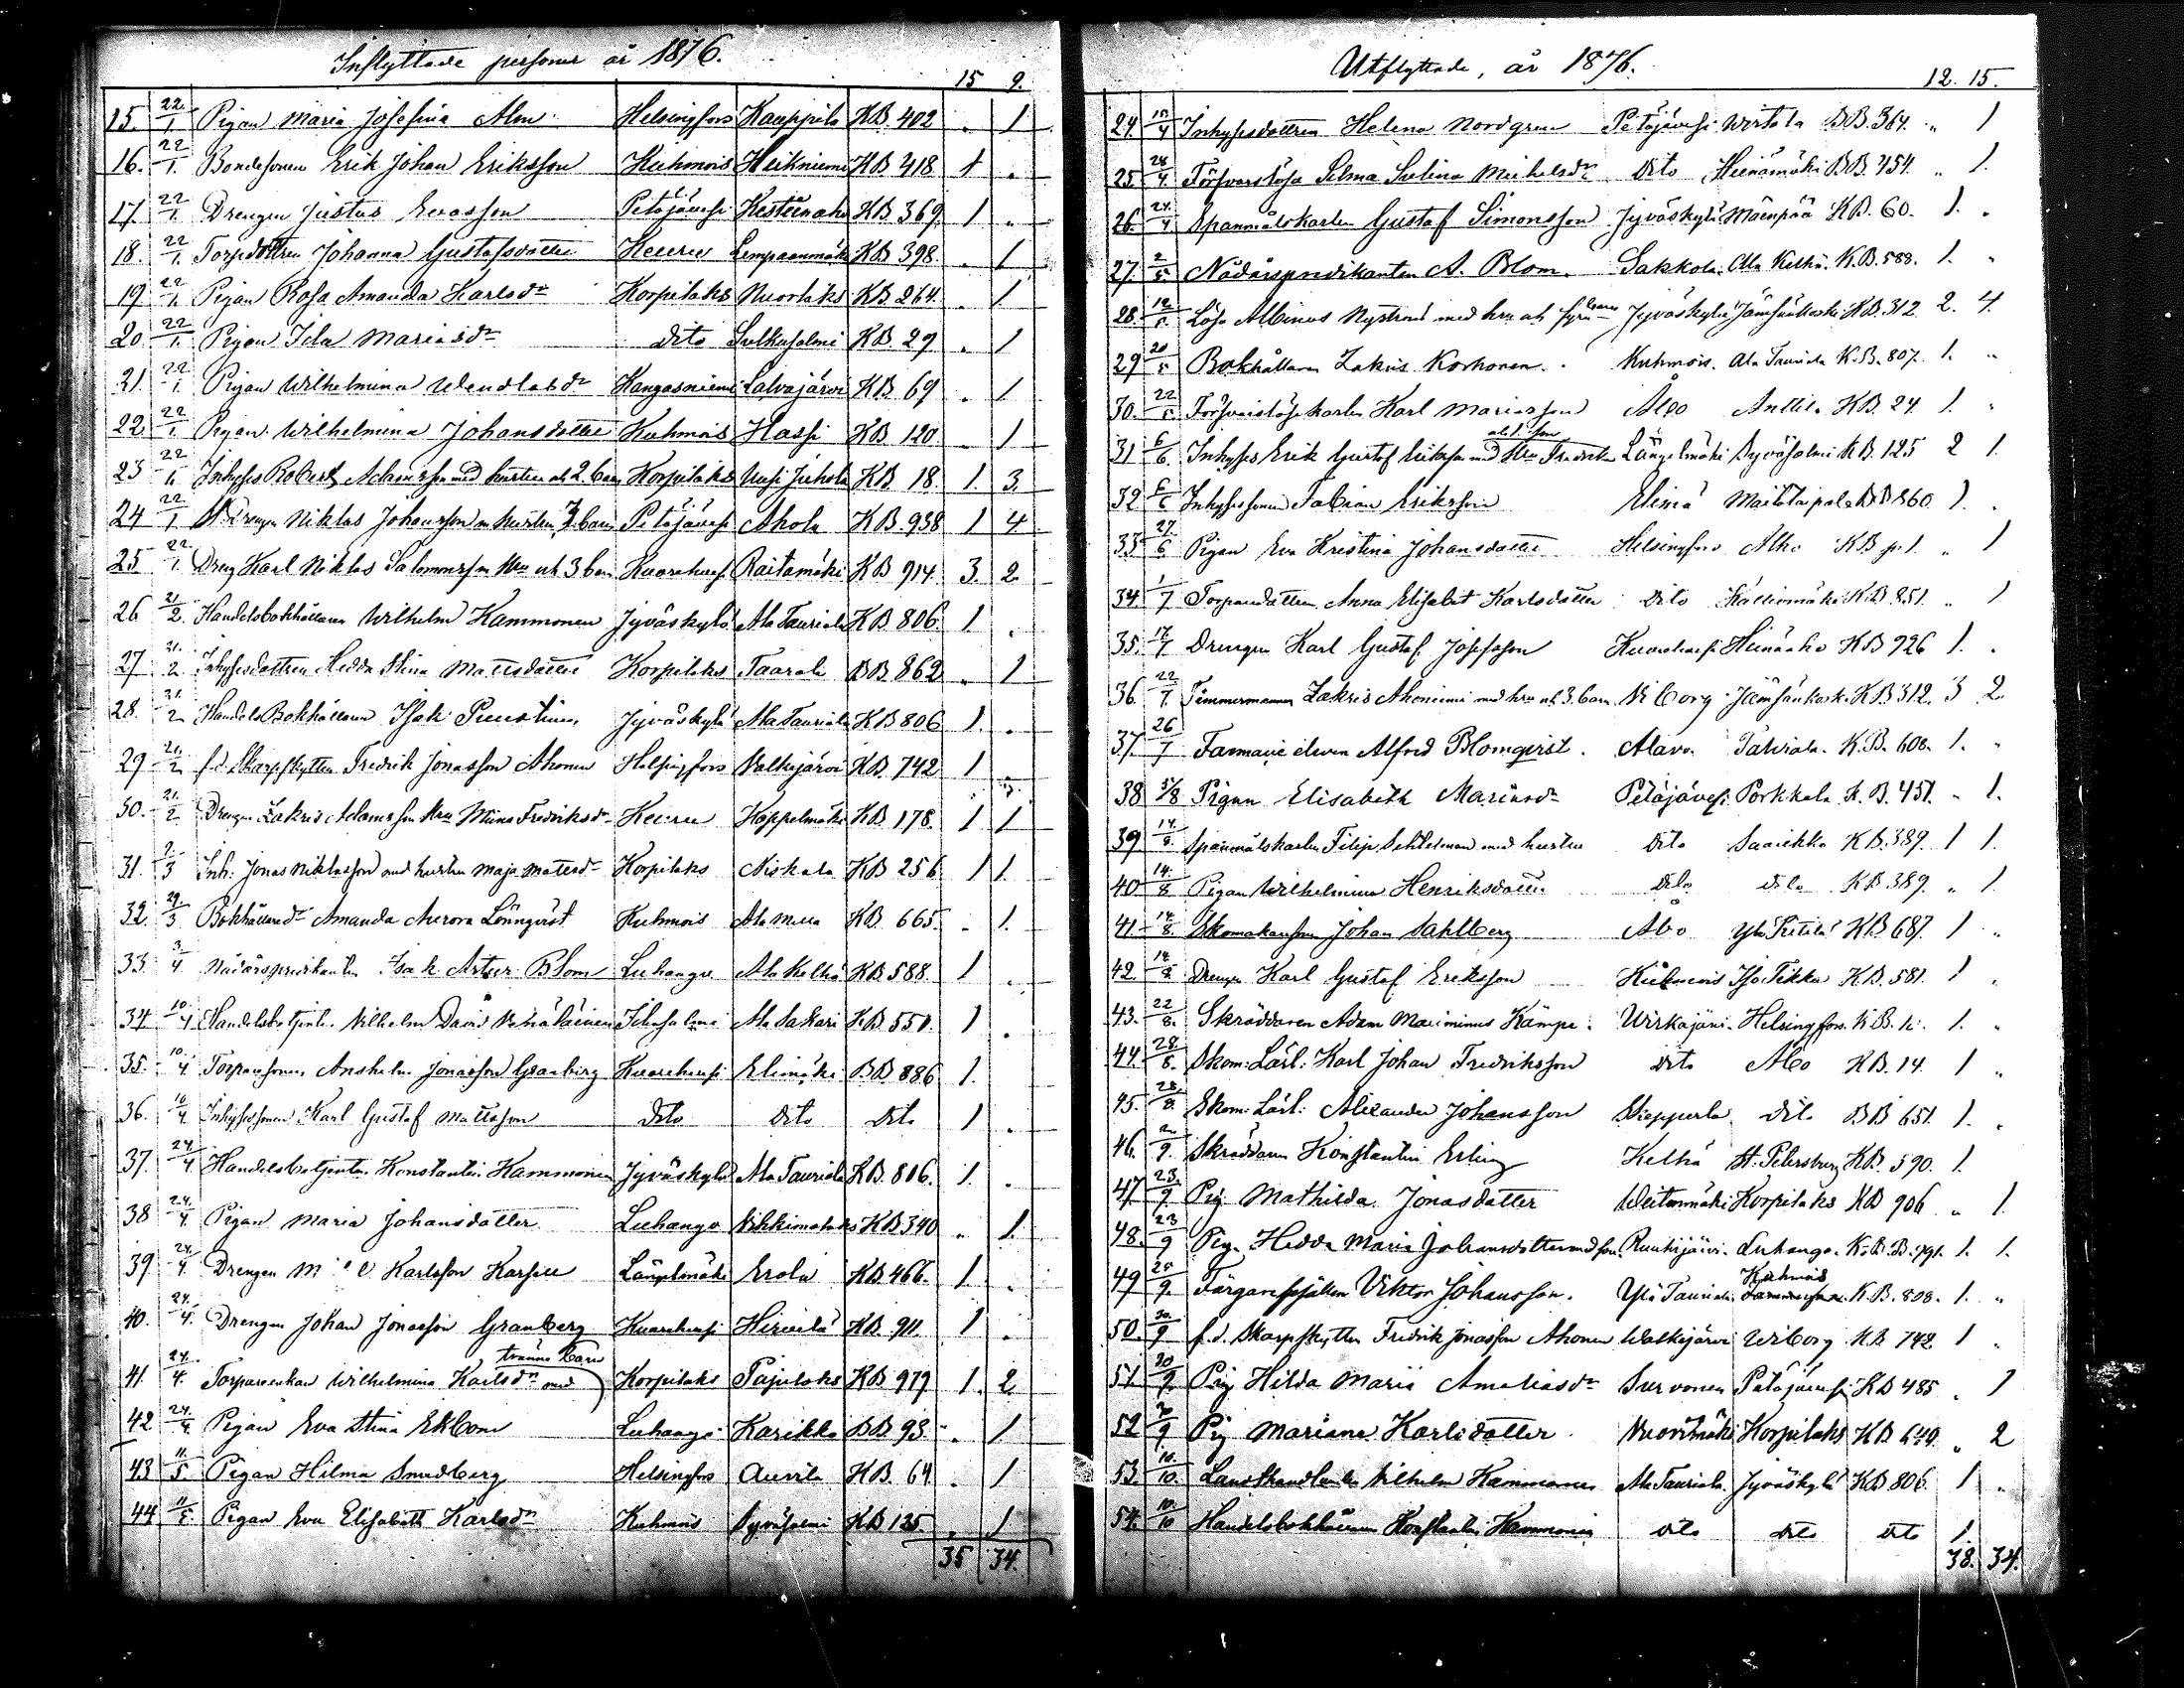 Inflyttade personer år 1876.
15 9.
15. 22/1. Pigan Maria Josefina Alm Helsingfors Kauppila KB. 402 „ 1
16. 22/1. Bondesonen Erik Johan Eriksson Kuhmois Heikniemi KB 418 1 „
17. 22/1. Drengen Justus Evasson Petäjävesi KB. 369. 1 „
18. 22/1. Johanna Gustafsdotter Keuru KB 398. „ 1
19 22/1. Pigan Rosa Amanda Karlsdr Korpilaks KB 264. „ 1
20. 22/1. Pigan Ida Mariasdr dito KB. 29 „ 1
21. 22/1 Pigan Wilhelmina Kangasniemi Salvajärvi KB 69 „ 1
22. 22/1. Pigan Wilhelmina Johansdotter Kuhmois Hassi KB 120 „ 1
23 22/1. Inhyses Robert Adamsson med hustru o. 2. barn Korpilaks Uusi Juhola KB 18. 1. 3.
24 22/1 Drengen Niklas Johansson m hustru Petäjävesi Ahola KB. 938 1 4
25 22/1. Dreng Karl Niklas Salomonsson Hru o. 3 barn Kuorehvesi Raitamäki KB 914. 3. 2.
26 21/2. Handelsbokhållaren Wilhelm Kammonen Jyväskylä Ala Tauriala KB 806. 1. „
27 21/2. Inhysesdottren Hedda Stina Mattsdotter Korpilaks Taarala BB 862 „ 1
28. 21/2 Handels Bokhållaren Isak Puustinen Jyväskylä Ala Tauriala KB 806 1. „
29 21/2 f.d. Skarpskytten Fredrik Jonasson Ahonen Helsingfors Valkijärvi KB. 742 1 „
30. 21/2 Drengen Zakris Adamsson Hru Miina Fredriksdr Keuru Koppelmäki KB. 178. 1. 1
31. 2/3 Inh. Jonas Niklasson med hustru Maja Mattsdr Korpilaks Niskala KB 256 1 1.
32. 29/3 Bokhållaredr Amanda Aurora Lönnqvist Kuhmois KB. 665. „ 1.
33. 3/4 Nådårspredikanten Isak Artur Blom Luhanga Ala Kelhä KB 588. 1 „
34. 10/4 Wilhelm David Ala Sakari KB. 551. 1 „
35. 10/4. Torparsonen Anshelm Jonasson Granberg Kuorehvesi Elimäki BB 886 1.
36. 10/4 Inhysessonen Karl Gustaf Mattsson dito dito dito 1 „
37. 24/4 Konstantin Kammonen Jyväskylä Ala Tauriala KB. 806. 1. „
38 24/4 Pigan Maria Johansdotter Luhanga KB 340 „ 1.
39 24/4. Drengen Karlsson Längelmäki Erola KB 466. 1. „
40. 24/4. Drengen Johan Jonasson Granberg Kuorehvesi Hirvilä KB. 911. 1 „
tvänne barn
41. 24/4. Torpareenkan Wilhelmina Karlsdr med Korpilaks Pajulaks KB 979 1. 2
42 24/4 Pigan Eva Stina Ekbom Luhanga Karikko BB 93. „ 1
43 11/5 Pigan Hilma Smedberg Helsingfors Auvila KB. 64 „ 1
44 11/5. Pigan Eva Elisabeth Karlsdr Kuhmois Syväsalmi KB 125. „ 1
35 34.
Utflyttade, år 1876.
12. 15.
24. 10/4 Inhysesdottren Helena Nordgren Petäjävesi Wirtala BB. 364. „ 1
25. 24/4. Försvarslösa Selma Sulina Mickelsdr dito Heinämäki BB. 454. „ 1.
26. 24/4 Spanmålskarlen Gustaf Simonsson Jyväskylä Mäenpää KB. 60. 1. „
27. 2/5. Nådårspredikanten A. Blom. Sakkola. Ala Kelhä. K.B. 588. 1. „
28. 12/5. Lösa Albinus Nyström med hru o. fyra barn Jyväskylä Jämsänkoski KB. 312 2. 4.
29 20/5 Bokhållaren Zakris Korhonen. Kuhmois. Ala Tauriala K.B. 807. 1. „
30. 22/5 Försvarslöse karlen Karl Mariasson Åbo Anttila KB. 24. 1. „
31 6/6. Inhyses Erik Gustaf Eriksson med Hru Fredrika Längelmäki Syväsalmi KB. 125 2 1.
32 6/6 Inhysessonen Fabian Eriksson Elimä BB 860 1. „
33 27/6 Pigan Eva Kristina Johansdotter Helsingfors KB p. 1. „ 1
34. 1/7 Torparedottren Anna Elisabet Karlsdotter dito Kalliomäki K.B. 851. „ 1
35. 17/7 Drengen Karl Gustaf Josefsson Kuorehvesi Heinäaho KB 926 1. „
36. 22/7. Timmermannen Zakris Ahoniemi med hru o. 3. barn Wiborg Jämsänkoski KB 312. 3 2.
37. 26/7 Farmacie eleven Alfred Blomqvist. Alavo. K.B. 608. 1. „
38 5/8 Pigan Elisabeth Mariasdr Petäjävesi Porkkala K.B. 451. „ 1.
39 14/8. Spannmålskarlen Filip med hustru dito Saarikko KB. 389. 1 1.
40 14/8 Pigan Wilhelmina Henriksdotter dito dito KB. 389. „ 1.
41 14/8 Skomakarsonen Johan Sahlberg Åbo KB 687. 1 „
42. 14/8. Drengen Karl Gustaf Eriksson Kuhmois Iso Pekka KB. 581. 1 „
43. 22/8. Skräddaren Adam Maximinus Kämpe. Wirkajärvi. Helsingfors. K.B. 1. „
44. 28/8. Skom. Lärl. Karl Johan Fredriksson dito Åbo KB. 14. 1 „
45. 28/8. Skom. Lärl. Alexander Johansson Skepperla dito BB 651. 1. „
46. 2/9. Skräddaren Konstantin Erling Kelhä St. Petersburg KB. 590. 1.
47. 23/9. Pig. Mathilda Jonasdotter Korpilaks KB 906 „ 1.
48. 23/9 Pig. Hedda Maria Johansdotter med son Ruuhijärvi. Luhanga. K.B. B. 791. 1. 1.
Kuhmois
49 28/9. Färgaregesällen Viktor Johansson. Ylä Tauriala. K.B. 808. 1. „
50. 30/9 f.d. Skarpskytten Fredrik Jonasson Ahonen Walkijärvi Wiborg KB 742 1 „
51 30/9. Pig Hilda Maria Amaliasdr Survonen Petäjävesi KB 485 „ 1
52 30/9 Pig Mariana Karlsdotter. Korpilaks KB 649. „ 2
53. 10/10. Landthandlanden Wilhelm Kammonen Ala Tauriala. Jyväskylä KB 806. 1 „
54. 10/10 Handelsbokhållaren Konstantin Kammonen dito dito dito 1.
38. 34.